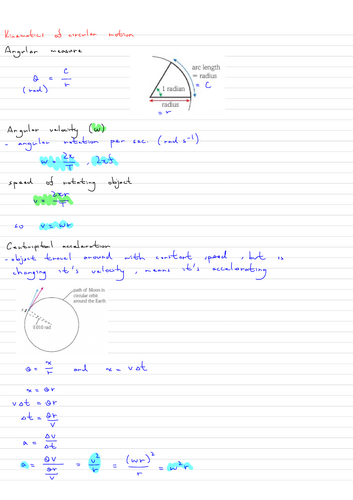 Kinematics of circular motion
Angular measure
θ = c/r
(rad)
arc length
= radius
= c
1 radian
radius
= r
Angular velocity (w)
- angular rotation per sec. (rad s⁻¹)
w = 2π/T , 2πf
speed of rotating object
v = 2πr/T
so v = wr
Centripetal acceleration
- object travel around with constant speed, but is
changing it's velocity, means it's accelerating
path of Moon in
circular orbit
around the Earth
0.010 rad
θ = x/r and x = vΔt
x = θr
vΔt = θr
Δt = θr/v
a = Δv/Δt
a = θv/(θr/v) = v²/r = (wr)²/r = w²r